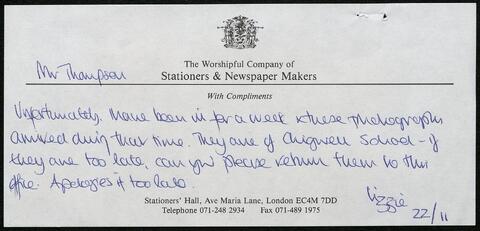 The Worshipful Company of
Stationers & Newspaper Makers
With Compliments
Mr Thompson
Unfortunately, I have been in for a week & these photographs
arrived during that time. They are of Chigwell School - if
they are too late, can you please return them to this
office. Apologies if too late.
Lizzie
22/11
Stationers' Hall, Ave Maria Lane, London EC4M 7DD
Telephone 071-248 2934 Fax 071-489 1975